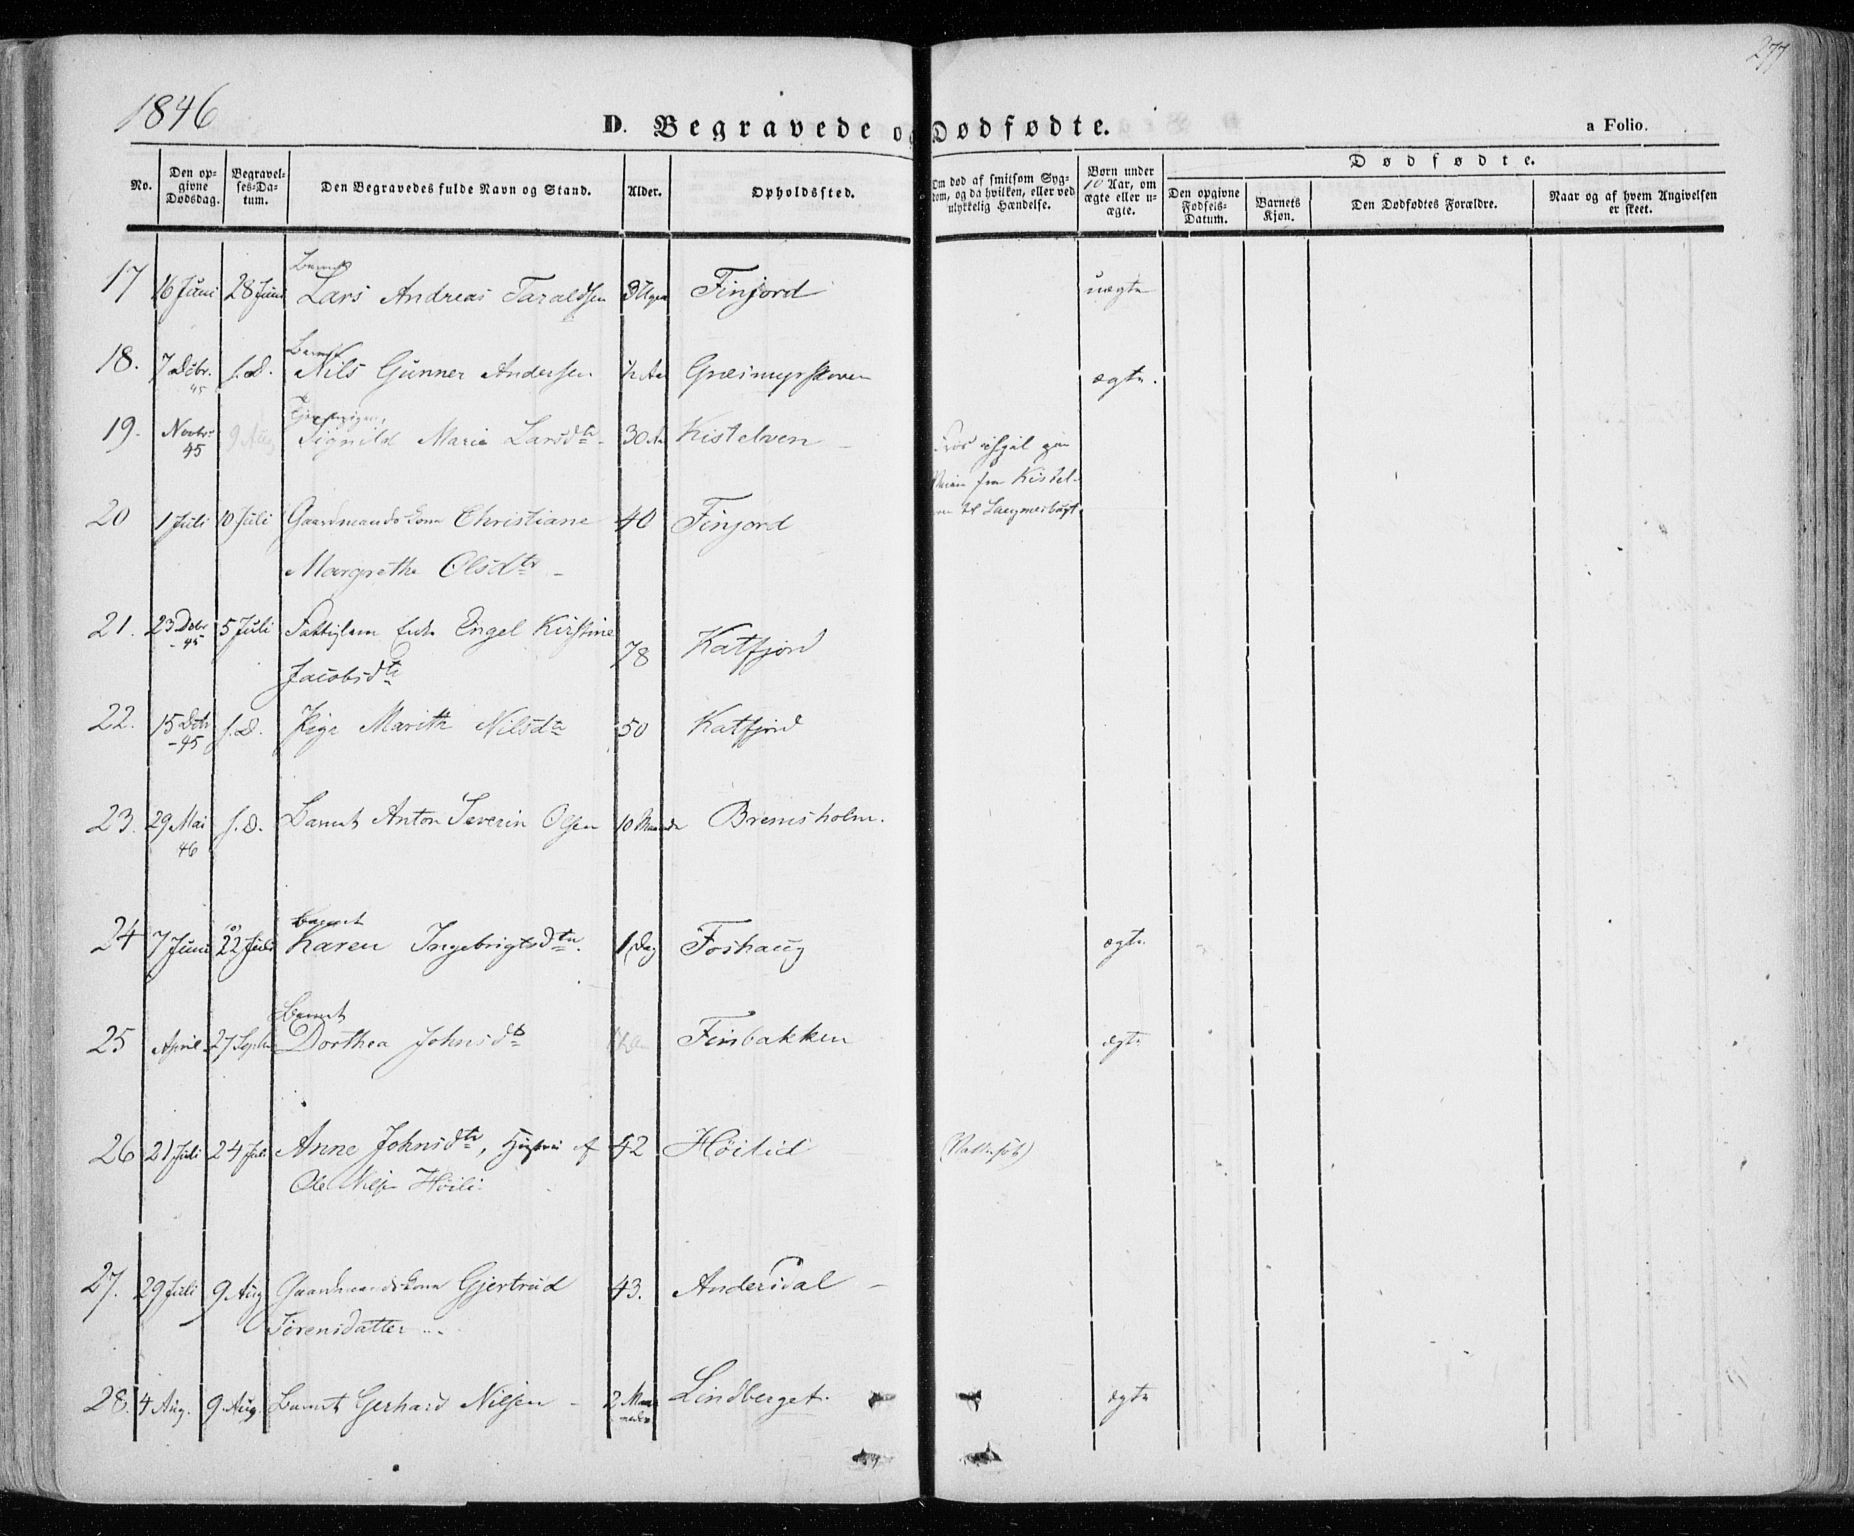 277
1846
D. Begravede og Dødfødte.
a Folio.
No.
Den op-
givne
Dødsdag.
Begravel-
ses-Da-
tum.
Den Begravedes fulde Navn og Stand.
Alder.
Opholdssted.
Om død af smitsom Syg-
dom, og da hvilken, eller ved
ulykkelig Hændelse.
Børn under
10 Aar, om
ægte eller u-
ægte.
Dødfødte.
Den opgivne
Fødsels-
Datum.
Barnets
Kjøn.
Den Dødfødtes Forældre.
Naar og af hvem Angivelsen
er skeet.
Barnet
17 16 Juni 28 Juni Lars Andreas Taraldsen 3 Uger Finjord uægte
Barnet
18. 7 Debr. 45 s.D. Nils Gunner Andersen ½ Aar Græsmyrskoven ægte.
19. Novbr. 45 9 Aug Signild Marie Larsdtr 30 Aar Kistelven
fra Kistel-
20 1 Juli 10 Juli Gaardmandskone Christiane 40 Finjord
Margrethe Olsdtr
21. 23 Debr 45 5 Juli Fattiglem Enke Engel Kirstine 78 Katfjord
Jacobsdtr
22. 15 Debr 45 s.D. Pige Marith Nilsdtr 50 Katfjord
23. 29 Mai 46 s.D. Barnet Anton Severin Olsen 10 Maaneder Bremsholm.
Barnet
24 7 Juni 22 Juli Karen Ingebrigtsdtr. 1 Dag Foshaug ægte
Barnet
25 April 27 Septbr Dorthea Johnsdtr Finbakken ægte
26 21 Juli 24 Juli Anne Johnsdtr, Hustru af 42 Høilid
Ole Nilsen Høili
27. 29 Juli 9 Aug Gaardmandskone Gjertrud 43. Andersdal
Sørensdatter
28. 4 Aug. 9 Aug. Barnet Gerhard Nilsen 2 Maaneder Lindberget. ægte